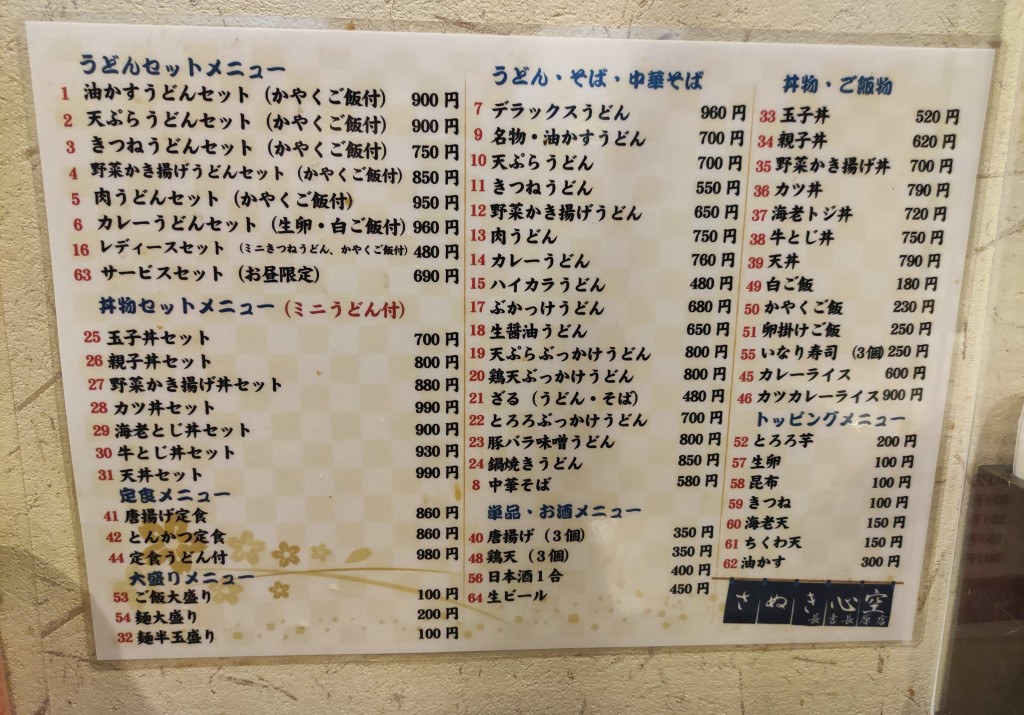 うどんセットメニュー
1 油かすうどんセット (かやくご飯付) 900 円
2 天ぷらうどんセット (かやくご飯付) 900 円
3 きつねうどんセット (かやくご飯付) 750 円
4 野菜かき揚げうどんセット (かやくご飯付) 850 円
5 肉うどんセット (かやくご飯付) 950 円
6 カレーうどんセット (生卵・白ご飯付) 960 円
16 レディースセット (ミニきつねうどん、かやくご飯付) 480 円
63 サービスセット (お昼限定) 690 円
丼物セットメニュー (ミニうどん付)
25 玉子丼セット 700 円
26 親子丼セット 800 円
27 野菜かき揚げ丼セット 880 円
28 カツ丼セット 990 円
29 海老とじ丼セット 900 円
30 牛とじ丼セット 930 円
31 天丼セット 990 円
定食メニュー
41 唐揚げ定食 860 円
42 とんかつ定食 860 円
44 定食うどん付 980 円
大盛りメニュー
53 ご飯大盛り 100 円
54 麺大盛り 200 円
32 麺半玉盛り 100 円
うどん・そば・中華そば
7 デラックスうどん 960 円
9 名物・油かすうどん 700 円
10 天ぷらうどん 700 円
11 きつねうどん 550 円
12 野菜かき揚げうどん 650 円
13 肉うどん 750 円
14 カレーうどん 760 円
15 ハイカラうどん 480 円
17 ぶかっけうどん 680 円
18 生醤油うどん 650 円
19 天ぷらぶっかけうどん 800 円
20 鶏天ぶっかけうどん 800 円
21 ざる (うどん・そば) 480 円
22 とろろぶっかけうどん 700 円
23 豚バラ味噌うどん 800 円
24 鍋焼きうどん 850 円
8 中華そば 580 円
単品・お酒メニュー
40 唐揚げ (3個) 350 円
48 鶏天 (3個) 350 円
56 日本酒1合 400 円
64 生ビール 450 円
丼物・ご飯物
33 玉子丼 520 円
34 親子丼 620 円
35 野菜かき揚げ丼 700 円
36 カツ丼 790 円
37 海老トジ丼 720 円
38 牛とじ丼 750 円
39 天丼 790 円
49 白ご飯 180 円
50 かやくご飯 230 円
51 卵掛けご飯 250 円
55 いなり寿司 (3個) 250 円
45 カレーライス 600 円
46 カツカレーライス 900 円
トッピングメニュー
52 とろろ芋 200 円
57 生卵 100 円
58 昆布 100 円
59 きつね 100 円
60 海老天 150 円
61 ちくわ天 150 円
62 油かす 300 円
さぬき心空
長吉長原店